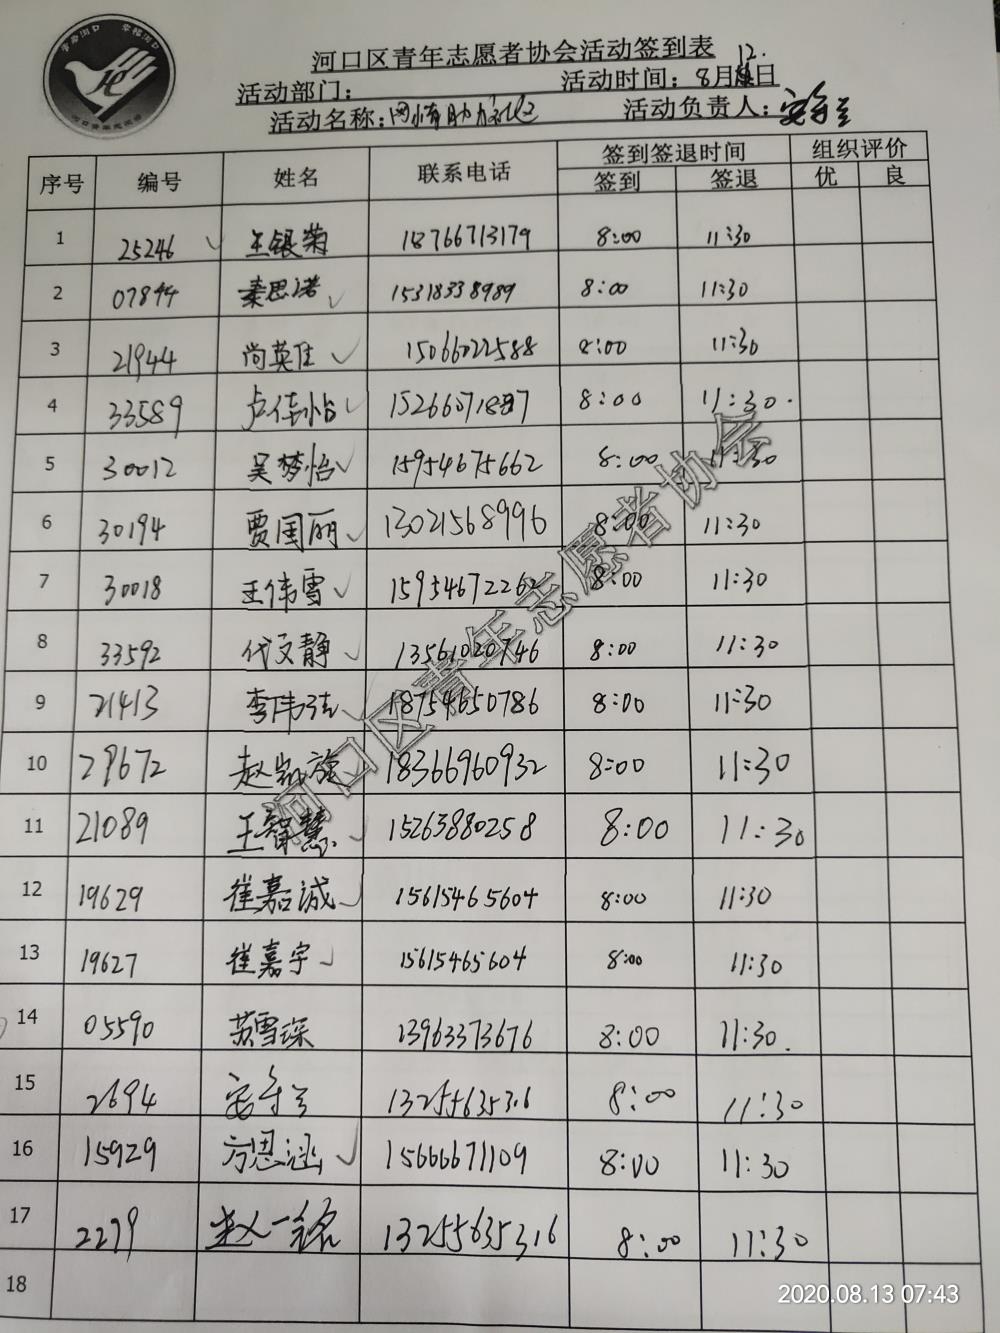 河口区青年志愿者协会活动签到表
活动部门： 活动时间：8月12日
活动名称： 活动负责人：安学兰
序号 编号 姓名 联系电话 签到签退时间 组织评价
签到 签退 优 良
1 25246 王银菊 18766713179 8:00 11:30
2 07844 秦思诺 15318338989 8:00 11:30
3 21944 尚英佳 15066022588 8:00 11:30
4 33589 卢佳怡 8:00 11:30.
5 30012 吴梦怡 15954675662 8:00 11:30
6 30194 贾国丽 13021568996 8:00 11:30
7 30018 王伟雪 15954672262 8:00 11:30
8 33592 代文静 13561020746 8:00 11:30
9 21413 李伟 18754650786 8:00 11:30
10 29672 赵凯旋 18366960932 8:00 11:30
11 21089 王智慧 15263880258 8:00 11:30
12 19629 崔嘉诚 15615465604 8:00 11:30
13 19627 崔嘉宇 15615465604 8:00 11:30
14 05590 苏雪琛 13963373676 8:00 11:30.
15 2694 13255635316 8:00 11:30
16 15929 方思涵 15666671109 8:00 11:30
17 2279 赵一铭 13255635316 8:00 11:30
18
河口区青年志愿者协会
2020.08.13 07:43